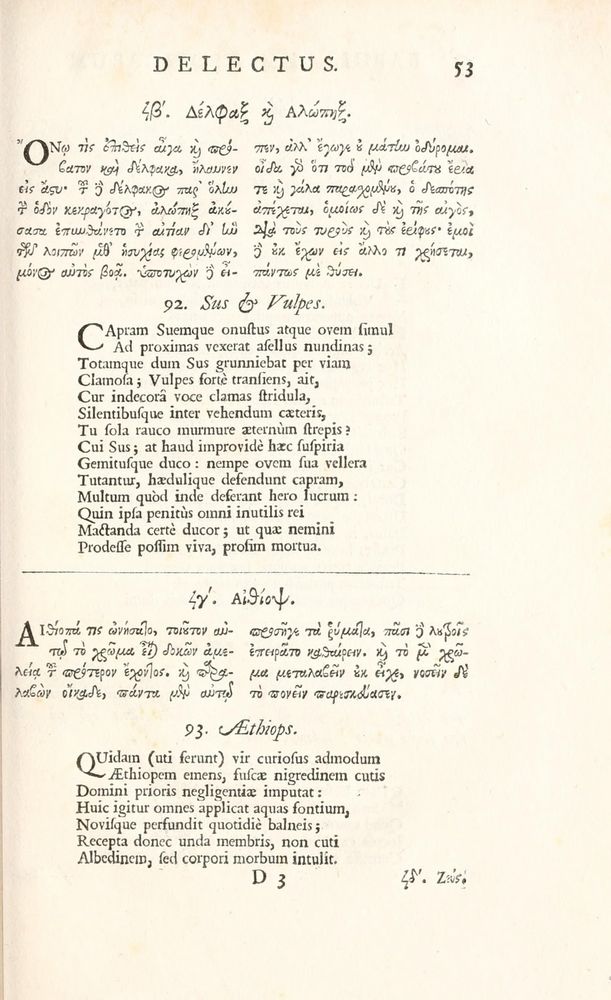 DELECTUS. 53
ϟβʹ. Δέλφαξ ϗ Αλώπηξ.
ὌΝῳ τὶς ἐπιθεὶς αἶγα ϗ πρό-
βατον καὶ δέλφακα, ἤλαυνεν
εἰς ἄστυ· τοῦ δὲ δέλφακος παρ' ὅλην
τὴν ὁδὸν κεκραγότος, ἀλώπηξ ἀκού-
σασα ἐπυνθάνετο τὴν αἰτίαν δι' ἣν
τῶν λοιπῶν μεθ' ἡσυχίας φερομένων,
μόνος αὐτὸς βοᾷ. ὑποτυχὼν δὲ εἶ-
πεν, ἀλλ' ἔγωγε οὐ μάτην ὀδύρομαι.
οἶδα γὰρ ὅτι τοῦ μὲν προβάτου ἔρια
τε ϗ γάλα παραχομένου, ὁ δεσπότης
ἀπέχεται, ὁμοίως δὲ ϗ τῆς αἰγὸς,
διὰ τοὺς τυροὺς ϗ τοὺς ἐρίφους· ἐμοὶ
δὲ οὐκ ἔχων εἰς ἄλλο τι χρήσεται,
πάντως μὲ θύσει.
92. Sus & Vulpes.
CApram Suemque onustus atque ovem simul
Ad proximas vexerat asellus nundinas;
Totamque dum Sus grunniebat per viam
Clamosa; Vulpes fortè transiens, ait,
Cur indecorâ voce clamas stridula,
Silentibusque inter vehendum cæteris,
Tu sola rauco murmure æternùm strepis?
Cui Sus; at haud improvidè hæc suspiria
Gemitusque duco: nempe ovem sua vellera
Tutantur, hædulique defendunt capram,
Multum quòd inde deferant hero lucrum:
Quin ipsa penitùs omni inutilis rei
Mactanda certè ducor; ut quæ nemini
Prodesse possim viva, prosim mortua.
ϟγʹ. Αἰθίοψ.
ΑἸθίοπά τις ὠνήσατο, τοιοῦτον αὐ-
τῷ τὸ χρῶμα εἶναι δοκῶν ἀμε-
λείᾳ τοῦ πρότερον ἔχοντος. ϗ παρα-
λαβὼν οἴκαδε, πάντα μὲν αὐτῷ
προσῆγε τὰ ῥύμματα, πᾶσι δὲ λουτροῖς
ἐπειρᾶτο καθαίρειν. ϗ τὸ μὲν χρῶ-
μα μεταλαβεῖν οὐκ εἶχε, νοσεῖν δὲ
τὸ πονεῖν παρεσκεύασεν.
93. Æthiops.
QUidam (uti ferunt) vir curiosus admodum
Æthiopem emens, fuscæ nigredinem cutis
Domini prioris negligentiæ imputat:
Huic igitur omnes applicat aquas fontium,
Novisque perfundit quotidiè balneis;
Recepta donec unda membris, non cuti
Albedinem, sed corpori morbum intulit.
D 3 ϟδʹ. Ζεύς.